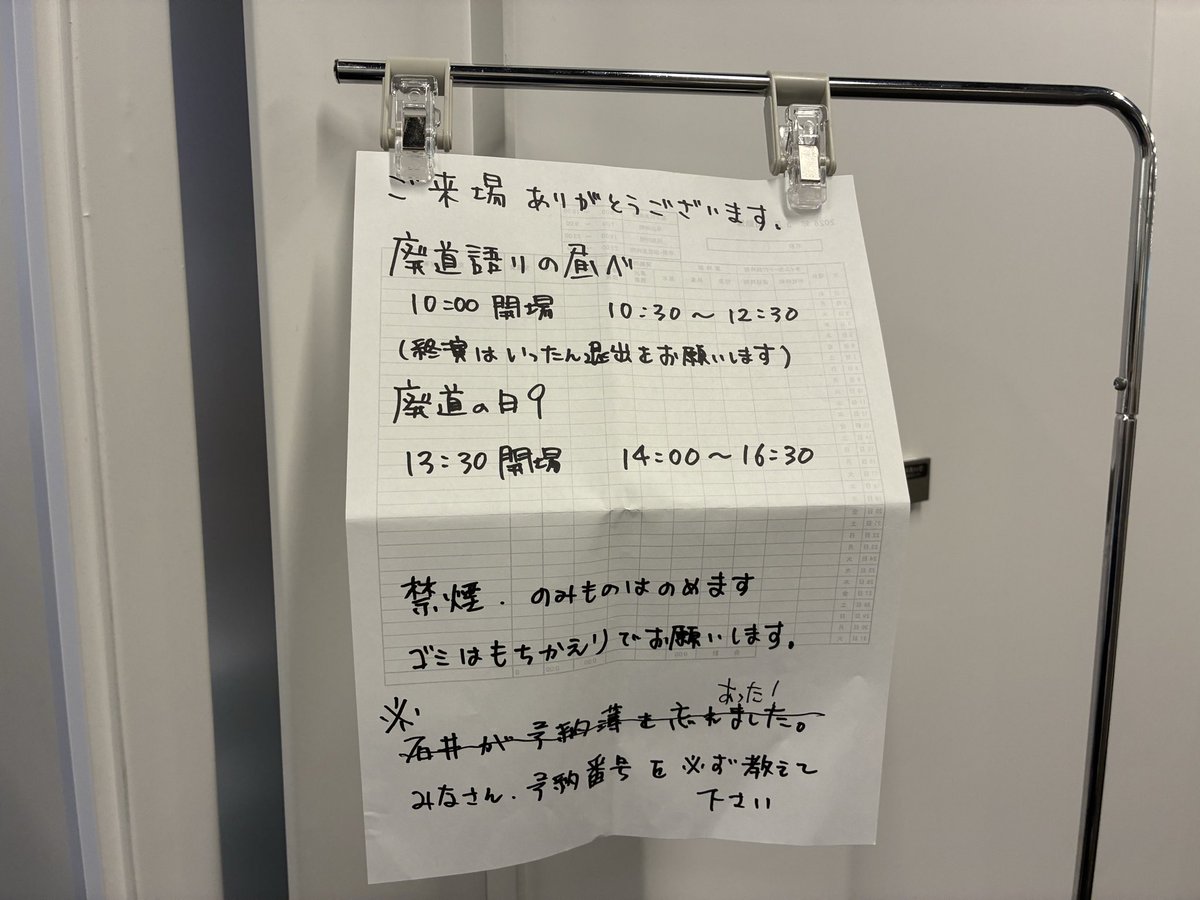 ご来場 ありがとうございます。
廃道語りの昼べ
10:00 開場 10:30〜12:30
(終演はいったん退出をお願いします)
廃道の日9
13:30 開場 14:00〜16:30
禁煙. のみものはのめます
ゴミはもちかえりでお願いします。
あった!
※
石井が予約簿を忘れました。
みなさん. 予約番号を必ず教えて
下さい